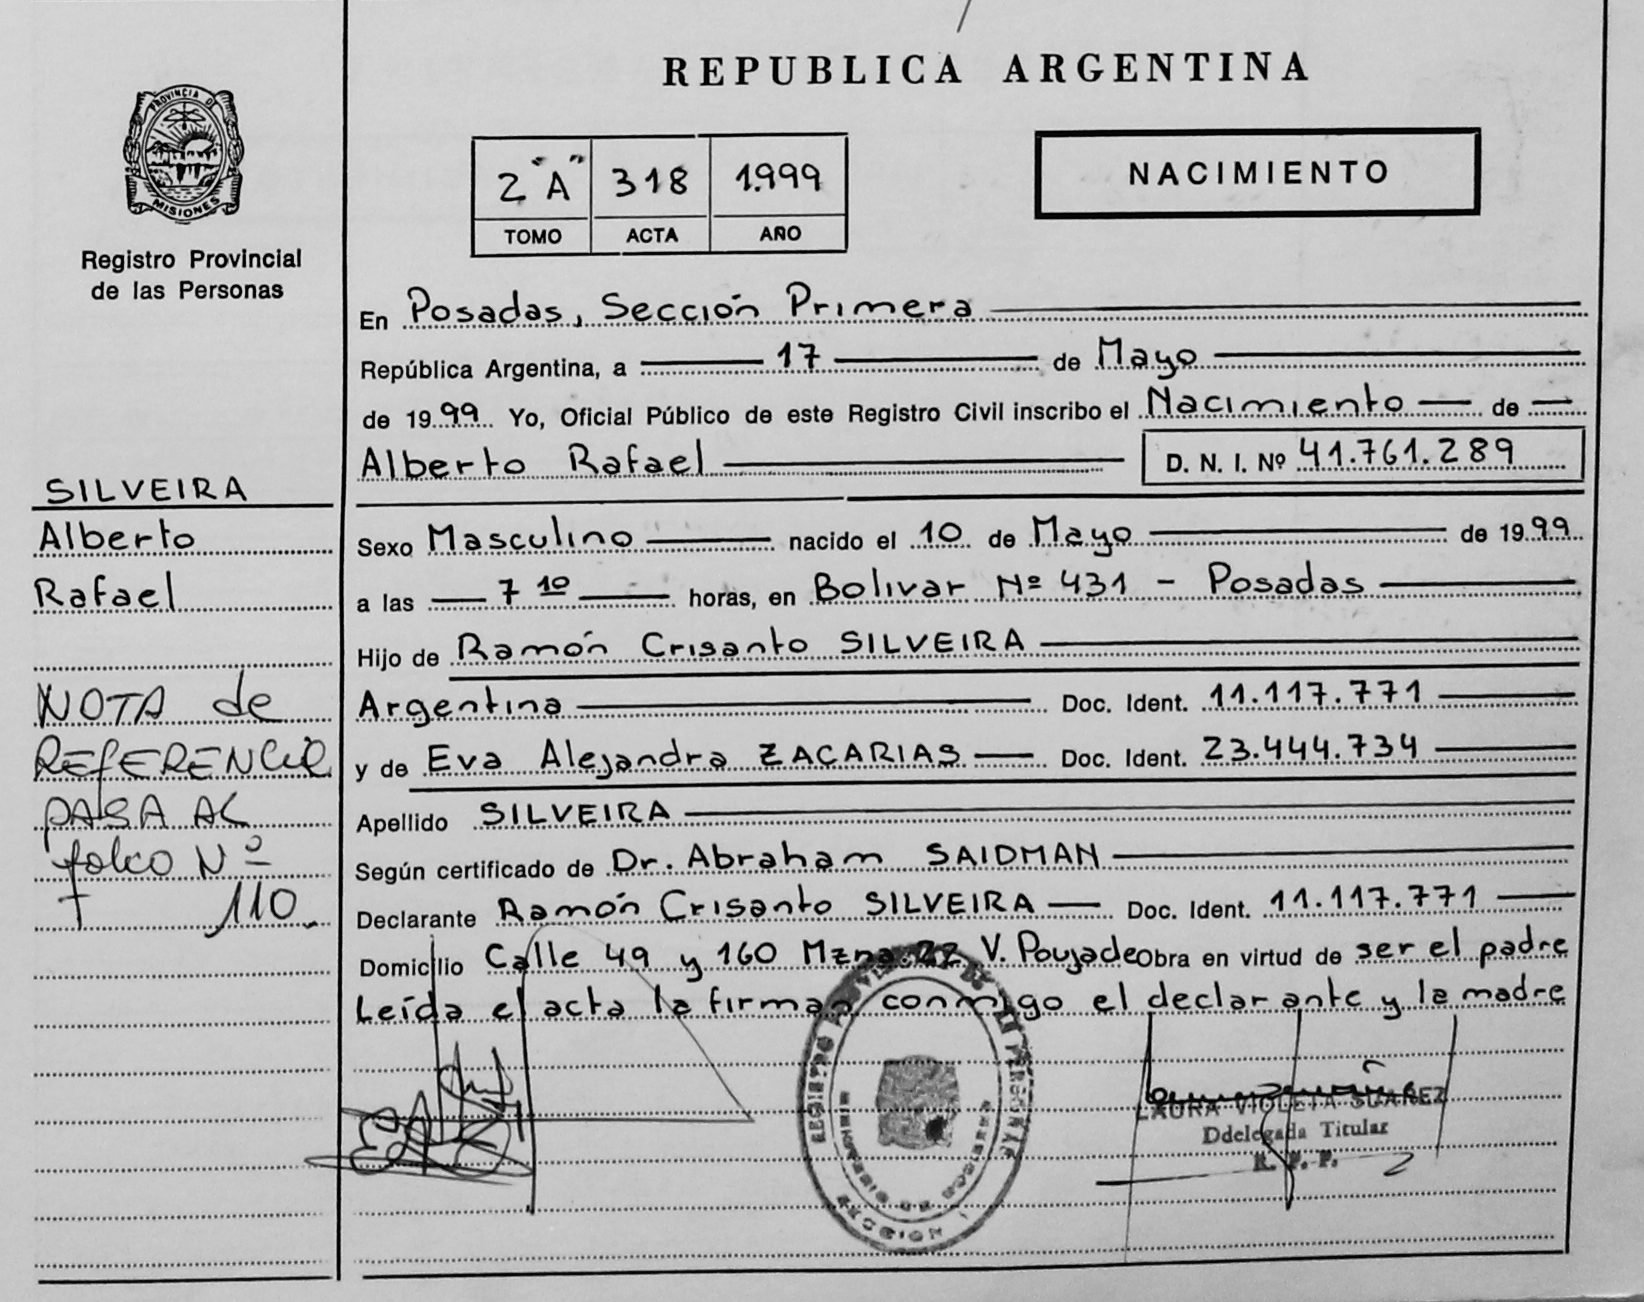 REPUBLICA ARGENTINA
PROVINCIA DE
MISIONES
Registro Provincial
de las Personas
2 "A" 318 1.999
TOMO ACTA AÑO
NACIMIENTO
En Posadas, Sección Primera
República Argentina, a 17 de Mayo
de 1999 Yo, Oficial Público de este Registro Civil inscribo el Nacimiento de
Alberto Rafael D. N. I. Nº 41.761.289
Sexo Masculino nacido el 10 de Mayo de 1999
a las 7 10 horas, en Bolivar Nº 431 - Posadas
Hijo de Ramón Crisanto SILVEIRA
Argentina Doc. Ident. 11.117.771
y de Eva Alejandra ZACARIAS Doc. Ident. 23.444.734
Apellido SILVEIRA
Según certificado de Dr. Abraham SAIDMAN
Declarante Ramón Crisanto SILVEIRA Doc. Ident. 11.117.771
Domicilio Calle 49 y 160 Mzna. 22 V. Poujade Obra en virtud de ser el padre
Leída el acta la firman conmigo el declarante y la madre
SILVEIRA
Alberto
Rafael
NOTA de
REFERENCIA
PASA AL
folio Nº
110
LAURA VIOLETA SUAREZ
Ddelegada Titular
R. P. P.